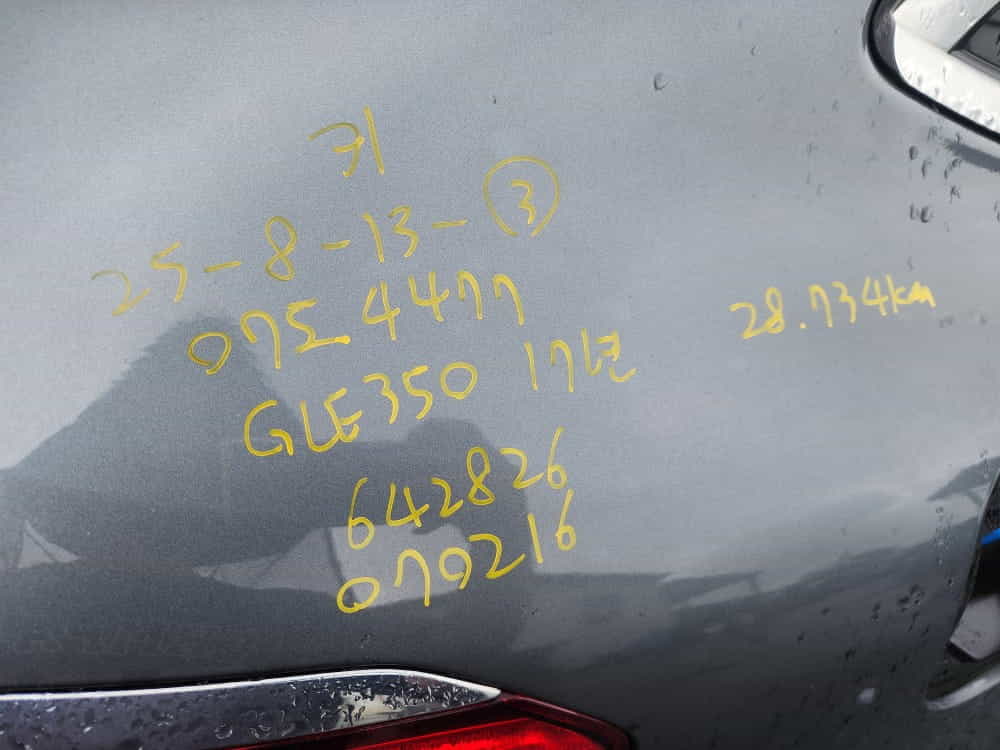 키
25-8-13-③
075 4477
GLE350 17년
642826
070216
28.734km